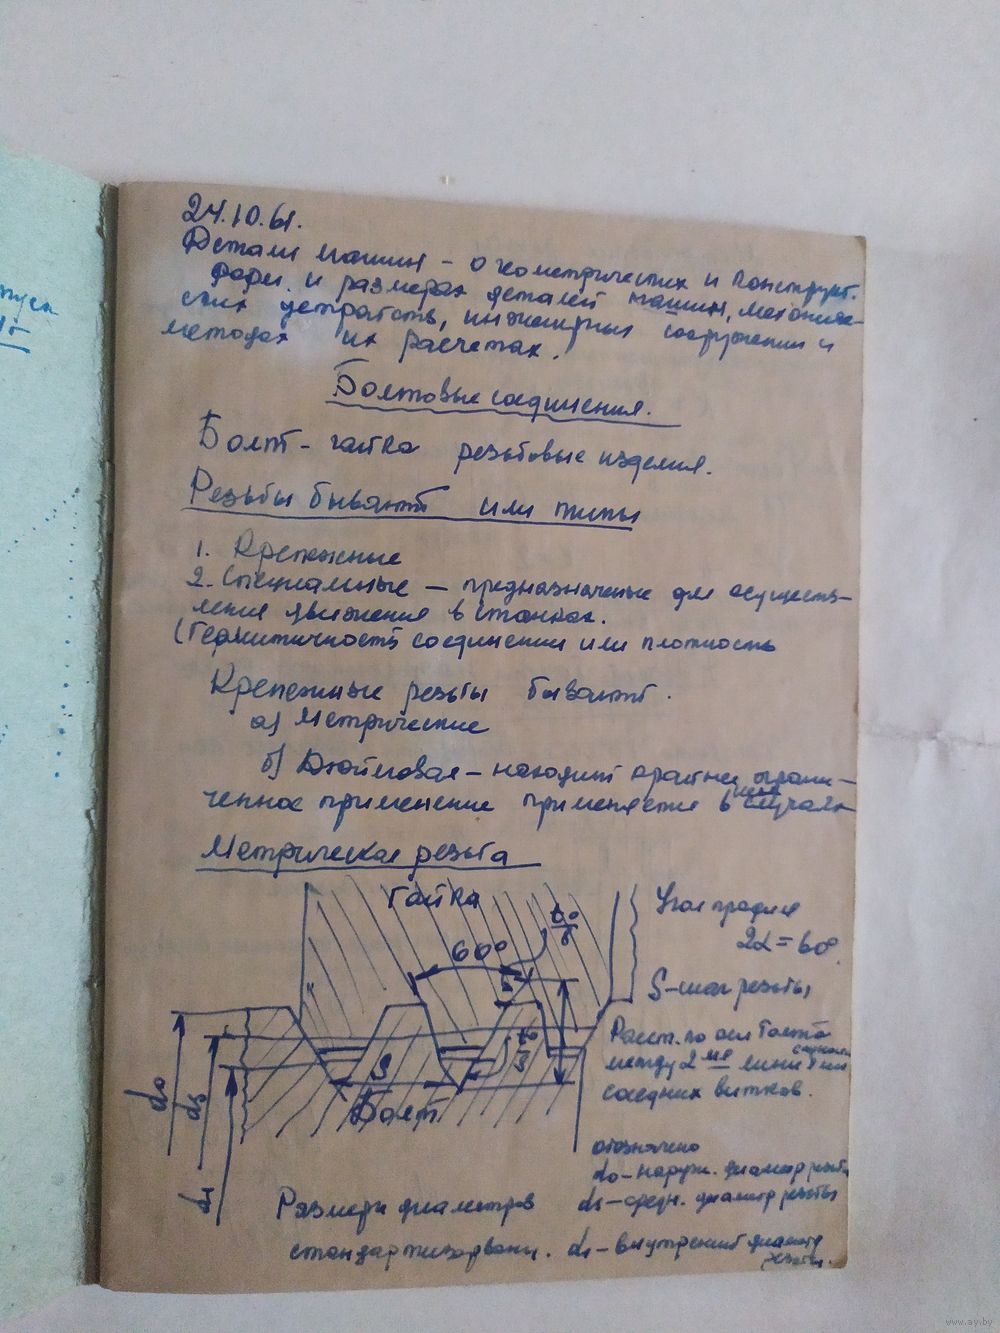 24.10.61.
Детали машин - о геометрических и конструкт.
форм. и размерах деталей машин, механиче-
ских устройств, инженерных сооружений и
методах их расчетах.
Болтовые соединения.
Болт - гайка резьбовые изделия.
Резьбы бывают или типы
1. Крепежные
2. Специальные — предназначеные для осуществ-
ления движения в станках.
(Герметичность соединении или плотность
Крепежные резьбы бывают.
а) Метрические
б) Дюймовая - находит крайне ограни-
ченное применение применяется в случаях
Метрическая резьба
Гайка
60°
S
Болт
d₀
d₁
Угол профиля
2α = 60°.
S - шаг резьбы
Расст. по оси болта
между 2мя
соседних витков.
обозначено
d₀ - наружн. диаметр резьбы
- средн. диаметр резьбы
d₁ - внутренний диаметр
резьбы.
Размеры диаметров
стандартизованы.
www.ay.by